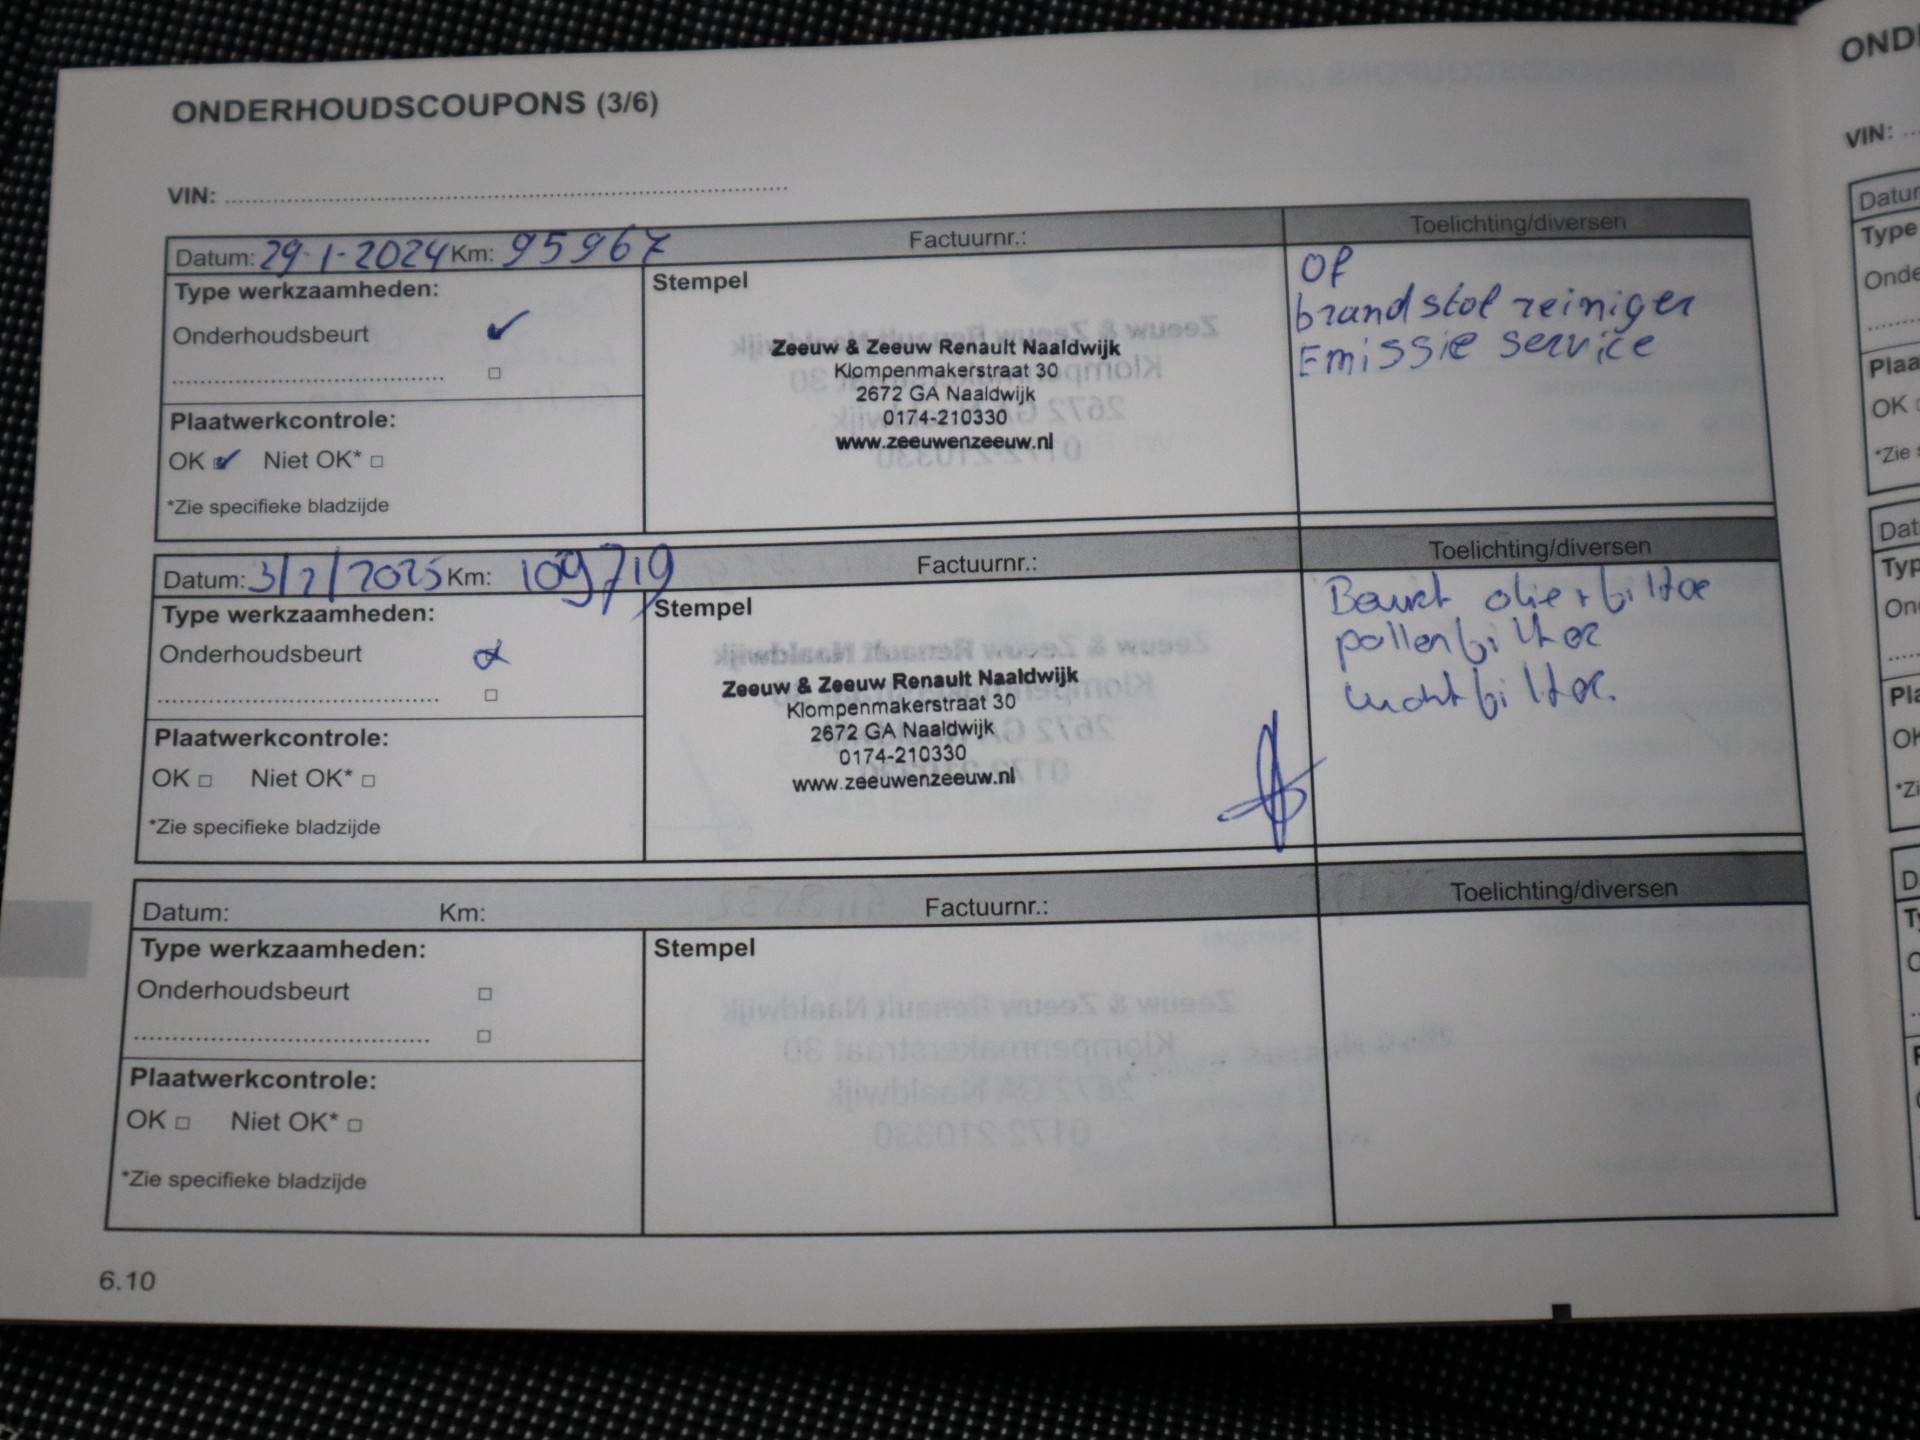 ONDERHOUDSCOUPONS (3/6)
VIN:
Datum: 29-1-2024 Km: 95967 Factuurnr.: Toelichting/diversen
Type werkzaamheden:
Onderhoudsbeurt ✓
Plaatwerkcontrole:
OK ✓ Niet OK* □
*Zie specifieke bladzijde
Stempel
Zeeuw & Zeeuw Renault Naaldwijk
Klompenmakerstraat 30
2672 GA Naaldwijk
0174-210330
www.zeeuwenzeeuw.nl
Of
brandstof reiniger
Emissie service
Datum: 3/2/2025 Km: 109719 Factuurnr.: Toelichting/diversen
Type werkzaamheden:
Onderhoudsbeurt
Plaatwerkcontrole:
OK □ Niet OK* □
*Zie specifieke bladzijde
Stempel
Zeeuw & Zeeuw Renault Naaldwijk
Klompenmakerstraat 30
2672 GA Naaldwijk
0174-210330
www.zeeuwenzeeuw.nl
Beurt olie+filter
pollenfilter
luchtfilter.
Datum: Km: Factuurnr.: Toelichting/diversen
Type werkzaamheden:
Onderhoudsbeurt □
Plaatwerkcontrole:
OK □ Niet OK* □
*Zie specifieke bladzijde
Stempel
6.10
VIN:
Type